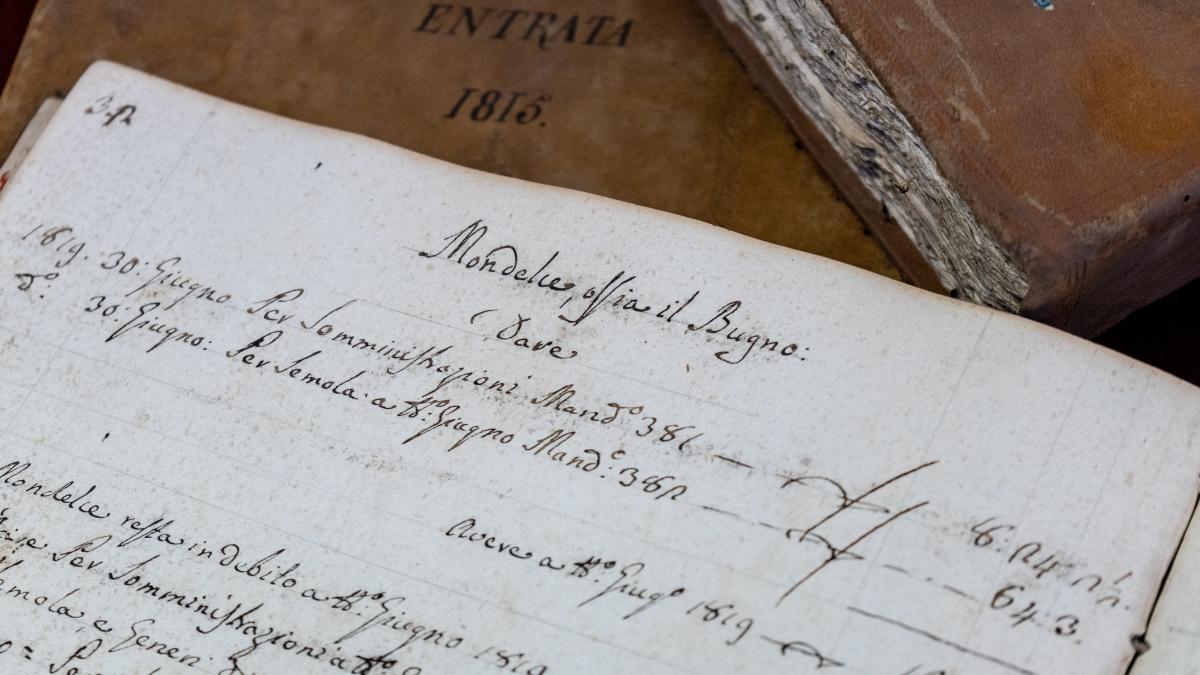 ENTRATA
1815.
Mondelce, ossia il Bugno:
Dare
1819. 30: Giugno Per Somministrazioni Mand.º 381
d.º 30: Giugno: Per Semola a tt.º Giugno Mand.º 382
64: 3.
Avere a tt.º Giugº 1819
Mondelce resta in debito a tt.º Giugno 1819
Per Somministrazioni a tt.º
Semola, e Generi